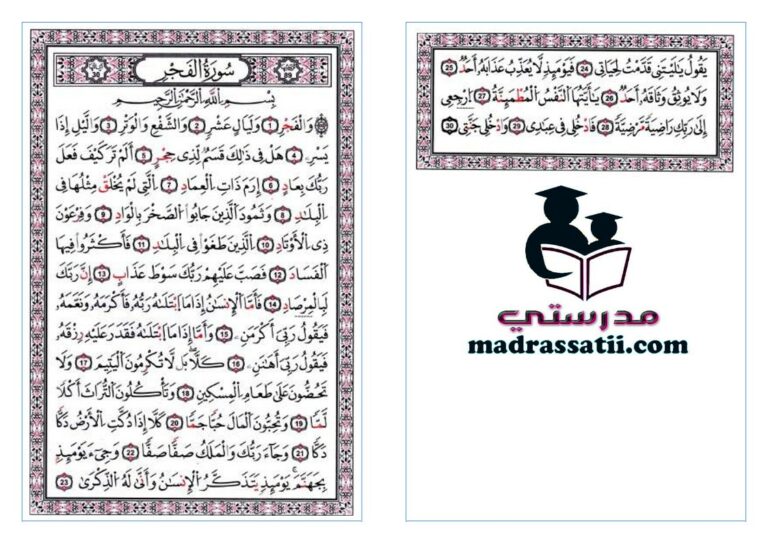 سُورَةُ الْفَجْرِ
بِسْمِ اللَّهِ الرَّحْمَٰنِ الرَّحِيمِ
وَالْفَجْرِ 1 وَلَيَالٍ عَشْرٍ 2 وَالشَّفْعِ وَالْوَتْرِ 3 وَالَّيْلِ إِذَا
يَسْرِۦ 4 هَلْ فِي ذَٰلِكَ قَسَمٌ لِّذِي حِجْرٍ 5 أَلَمْ تَرَ كَيْفَ فَعَلَ
رَبُّكَ بِعَادٍ 6 إِرَمَ ذَاتِ الْعِمَادِ 7 الَّتِي لَمْ يُخْلَقْ مِثْلُهَا فِي
الْبِلَٰدِ 8 وَثَمُودَ الَّذِينَ جَابُوا الصَّخْرَ بِالْوَادِۦ 9 وَفِرْعَوْنَ
ذِي الْأَوْتَادِ 10 الَّذِينَ طَغَوْا فِي الْبِلَٰدِ 11 فَأَكْثَرُوا فِيهَا
الْفَسَادَ 12 فَصَبَّ عَلَيْهِمْ رَبُّكَ سَوْطَ عَذَابٍ 13 إِنَّ رَبَّكَ
لَبِالْمِرْصَادِ 14 فَأَمَّا الْإِنسَٰنُ إِذَا مَا ابْتَلَىٰهُ رَبُّهُۥ فَأَكْرَمَهُۥ وَنَعَّمَهُۥ
فَيَقُولُ رَبِّيَ أَكْرَمَنِۦ 15 وَأَمَّا إِذَا مَا ابْتَلَىٰهُ فَقَدَرَ عَلَيْهِ رِزْقَهُۥ
فَيَقُولُ رَبِّيَ أَهَٰنَنِۦ 16 كَلَّا بَل لَّا تُكْرِمُونَ الْيَتِيمَ 17 وَلَا
تَحُضُّونَ عَلَىٰ طَعَامِ الْمِسْكِينِ 18 وَتَأْكُلُونَ التُّرَاثَ أَكْلًا
لَّمًّا 19 وَتُحِبُّونَ الْمَالَ حُبًّا جَمًّا 20 كَلَّا إِذَا دُكَّتِ الْأَرْضُ دَكًّا
دَكًّا 21 وَجَاءَ رَبُّكَ وَالْمَلَكُ صَفًّا صَفًّا 22 وَجِيءَ يَوْمَئِذٍ
بِجَهَنَّمَ يَوْمَئِذٍ يَتَذَكَّرُ الْإِنسَٰنُ وَأَنَّىٰ لَهُ الذِّكْرَىٰ 23
يَقُولُ يَٰلَيْتَنِي قَدَّمْتُ لِحَيَاتِي 24 فَيَوْمَئِذٍ لَّا يُعَذِّبُ عَذَابَهُۥ أَحَدٌ 25
وَلَا يُوثِقُ وَثَاقَهُۥ أَحَدٌ 26 يَٰأَيَّتُهَا النَّفْسُ الْمُطْمَئِنَّةُ 27 ارْجِعِي
إِلَىٰ رَبِّكِ رَاضِيَةً مَّرْضِيَّةً 28 فَادْخُلِي فِي عِبَٰدِي 29 وَادْخُلِي جَنَّتِي 30
مدرستي
madrassatii.com